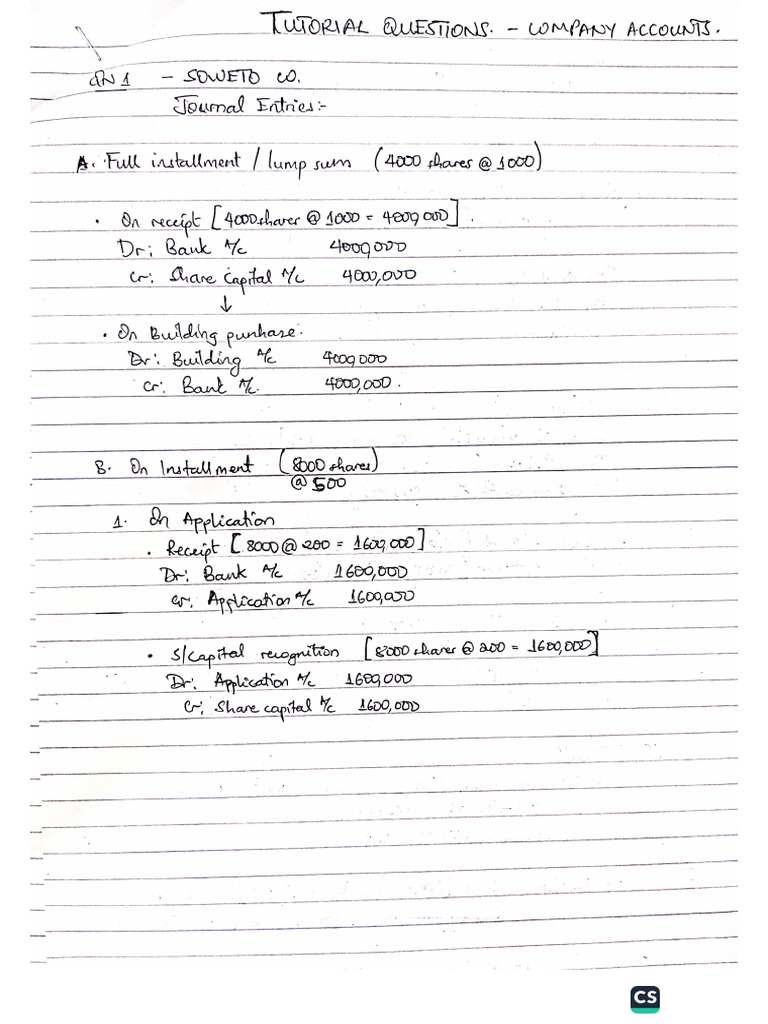 TUTORIAL QUESTIONS. - COMPANY ACCOUNTS.
QN 1 - SOWETO CO.
Journal Entries:-
A. Full installment / lump sum (4000 shares @ 1000)
• On receipt [4000 shares @ 1000 = 4000,000].
Dr: Bank A/c 4000,000
Cr: Share Capital A/c 4000,000
↓
• On Building purchase.
Dr: Building A/c 4000,000
Cr: Bank A/c. 4000,000.
B. On Installment (8000 shares)
@ 500
1. On Application
• Receipt [8000 @ 200 = 1600,000]
Dr: Bank A/c 1600,000
Cr: Application A/c 1600,000
• S/Capital recognition [8000 shares @ 200 = 1600,000]
Dr: Application A/c 1600,000
Cr: Share capital A/c 1600,000
CS